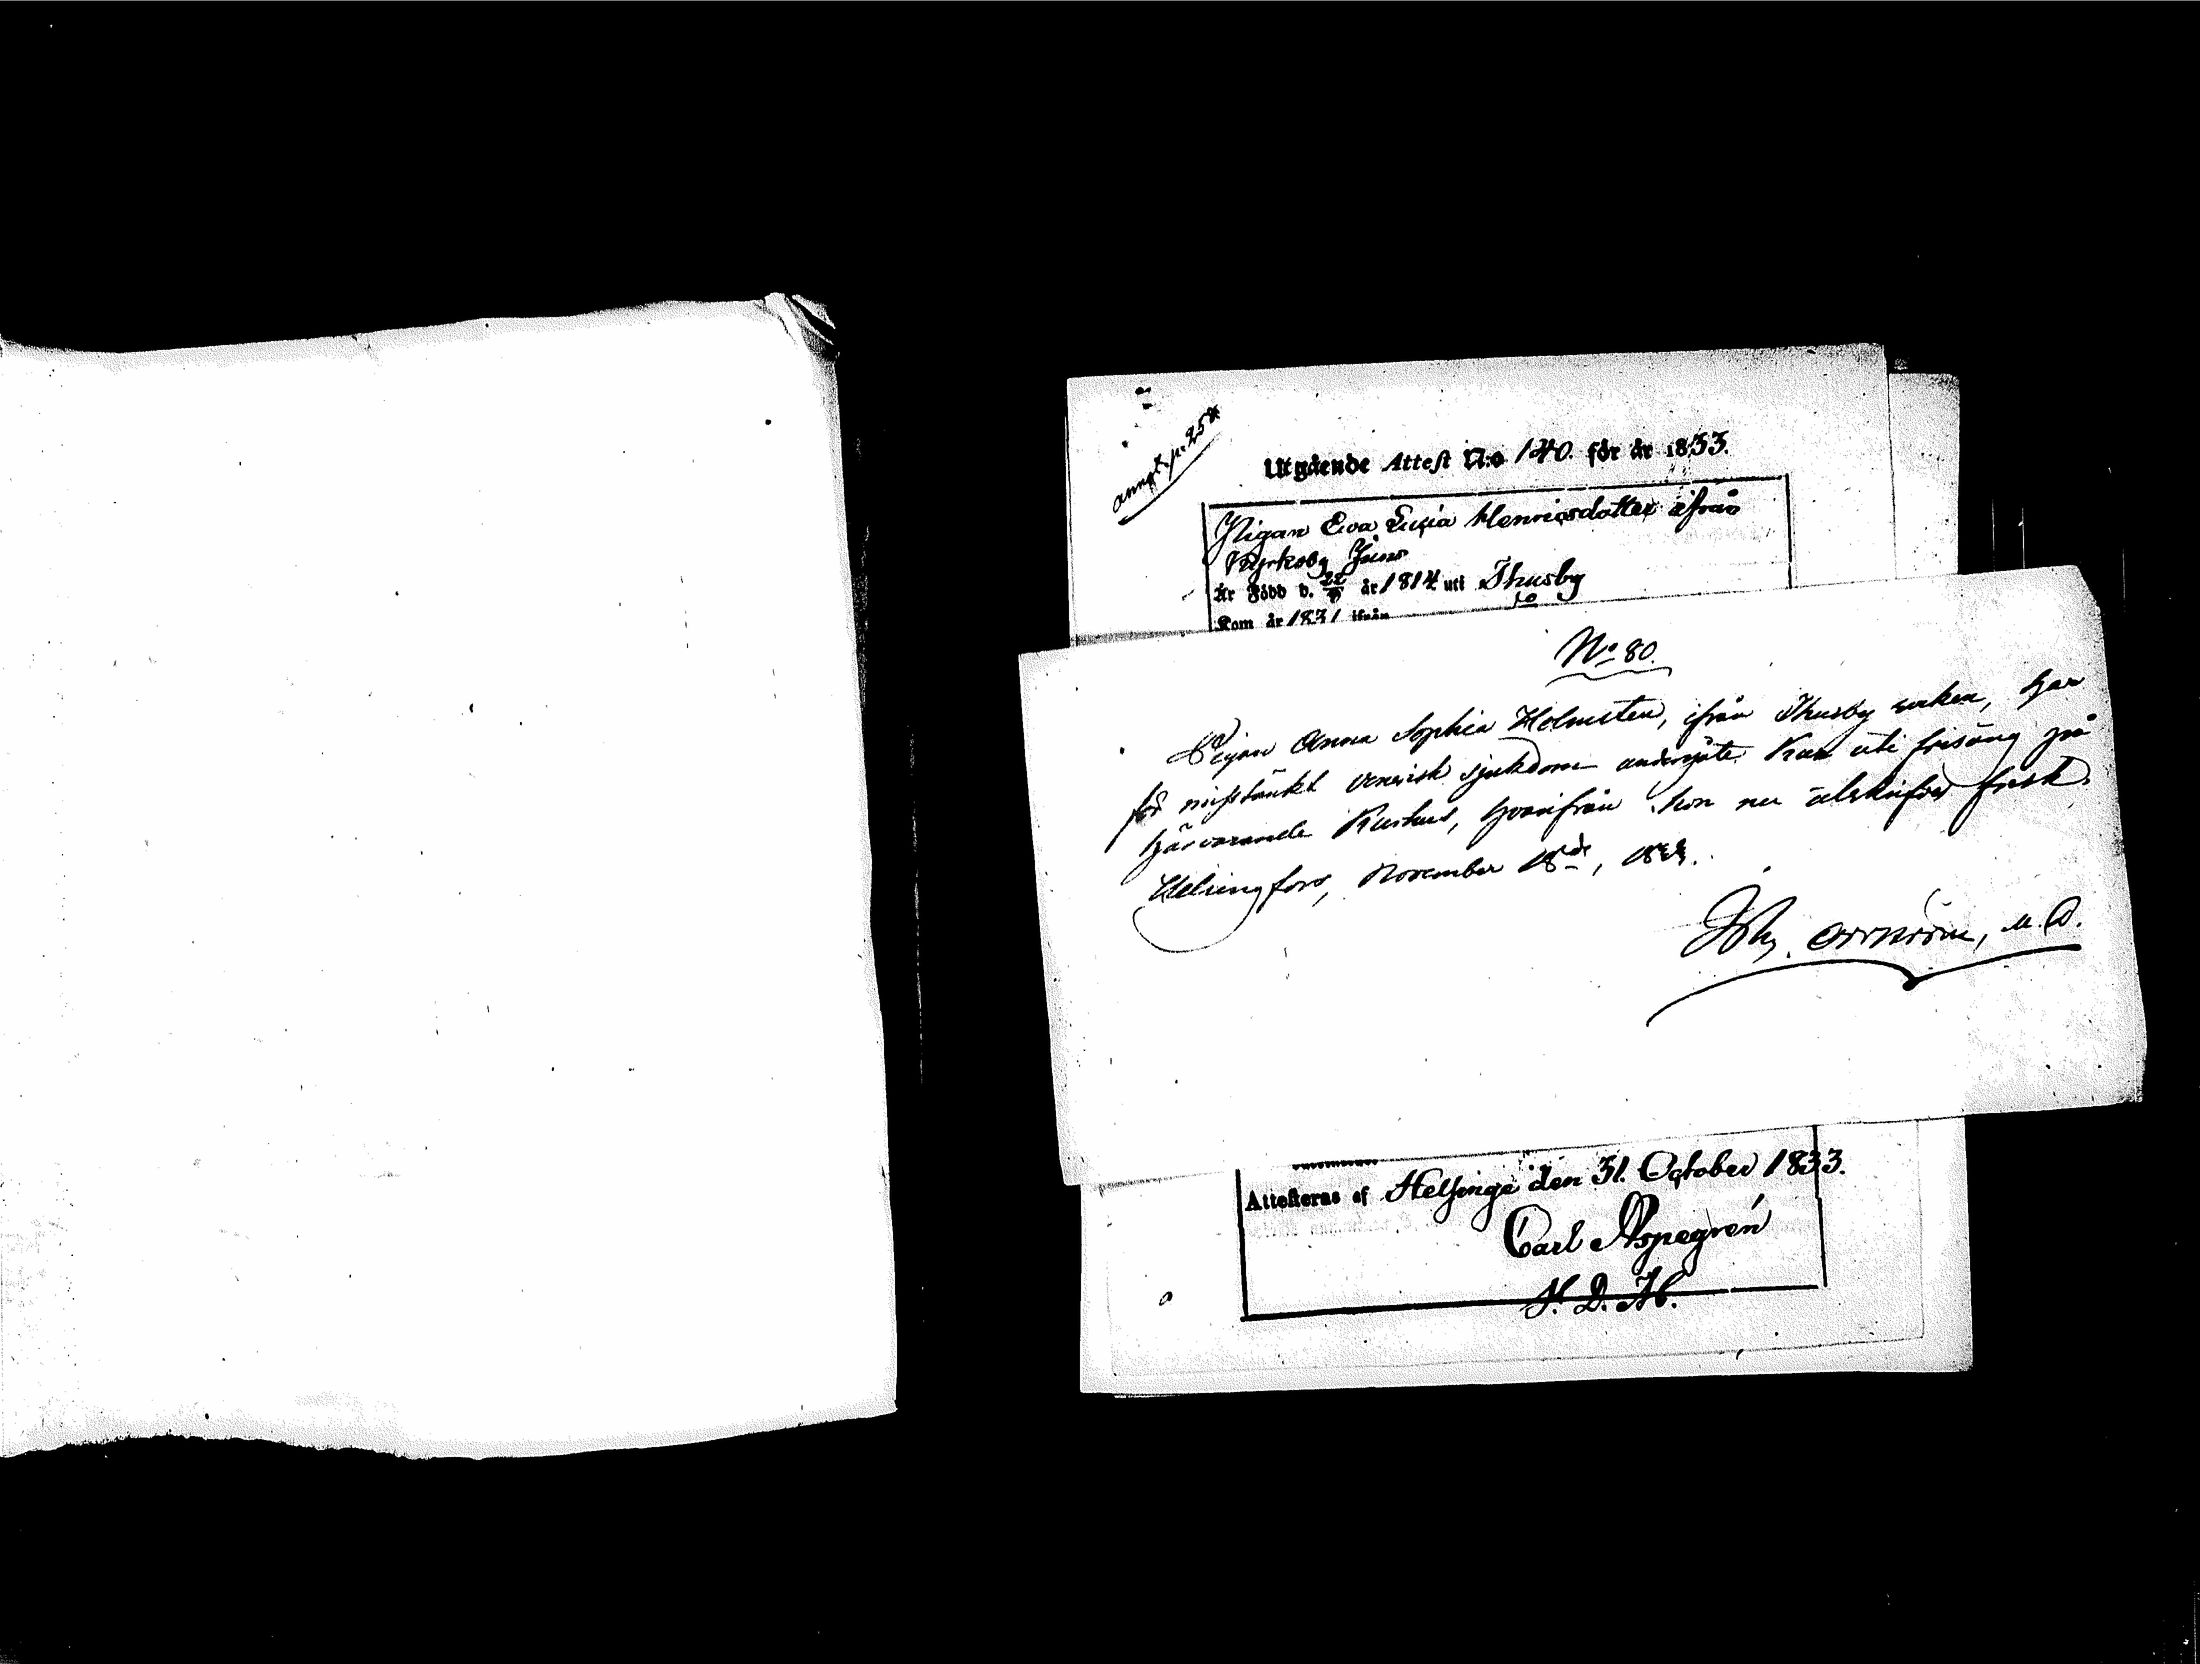 anmält p. 258
Utgående Attest N:o 140. för år 1833.
Pigan Eva Lisia Henricsdotter ifrån
Kyrkoby Jäns
Är Född d. 22/9 år 1814 uti Thusby
Kom år 1831 ifrån
No 80.
Pigan Anna Sophia Holmsten, ifrån Thusby socken, har
för misstänkt venerisk sjukdom undergått Kur uti frisäng på
härvarande Kurhus, hvarifrån hon nu utskrifves frisk.
Helsingfors, November 18de, 1833.
Joh. M. D.
Attesteras af Helsinge den 31. October 1833.
Carl Aspegrén
V. D. M.